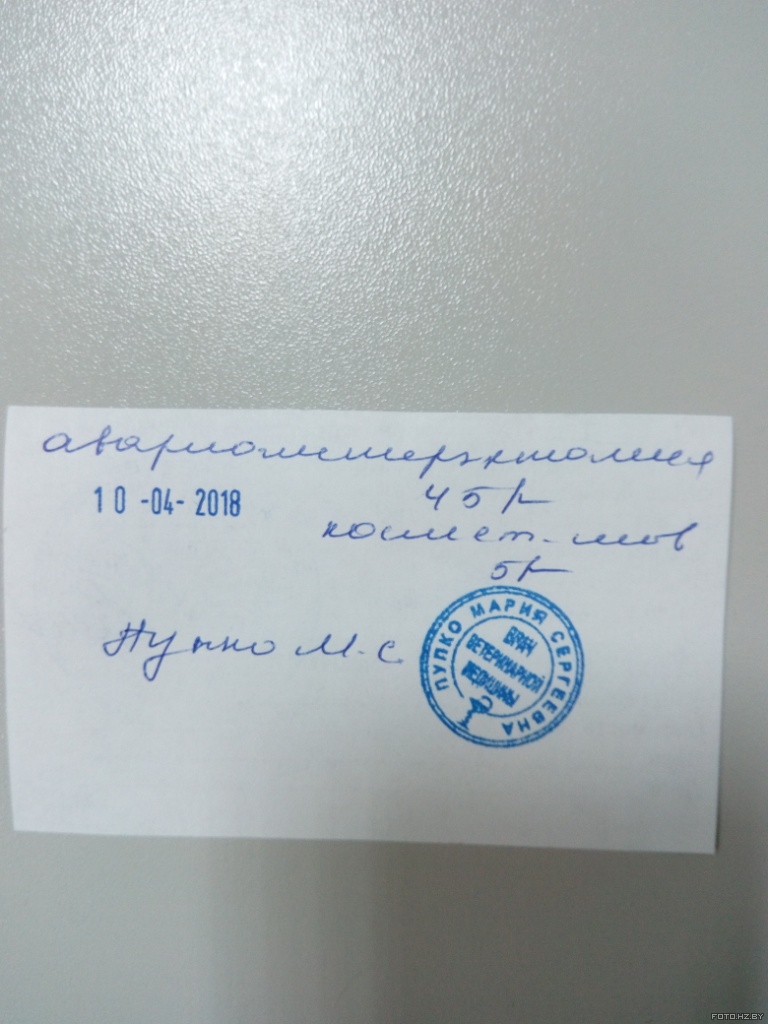 овариогистерэктомия
10-04-2018
45 р
космет. шов
5 р
Пупко М.С.
ПУПКО МАРИЯ СЕРГЕЕВНА
ВРАЧ
ВЕТЕРИНАРНОЙ
МЕДИЦИНЫ
FOTO.HZ.BY